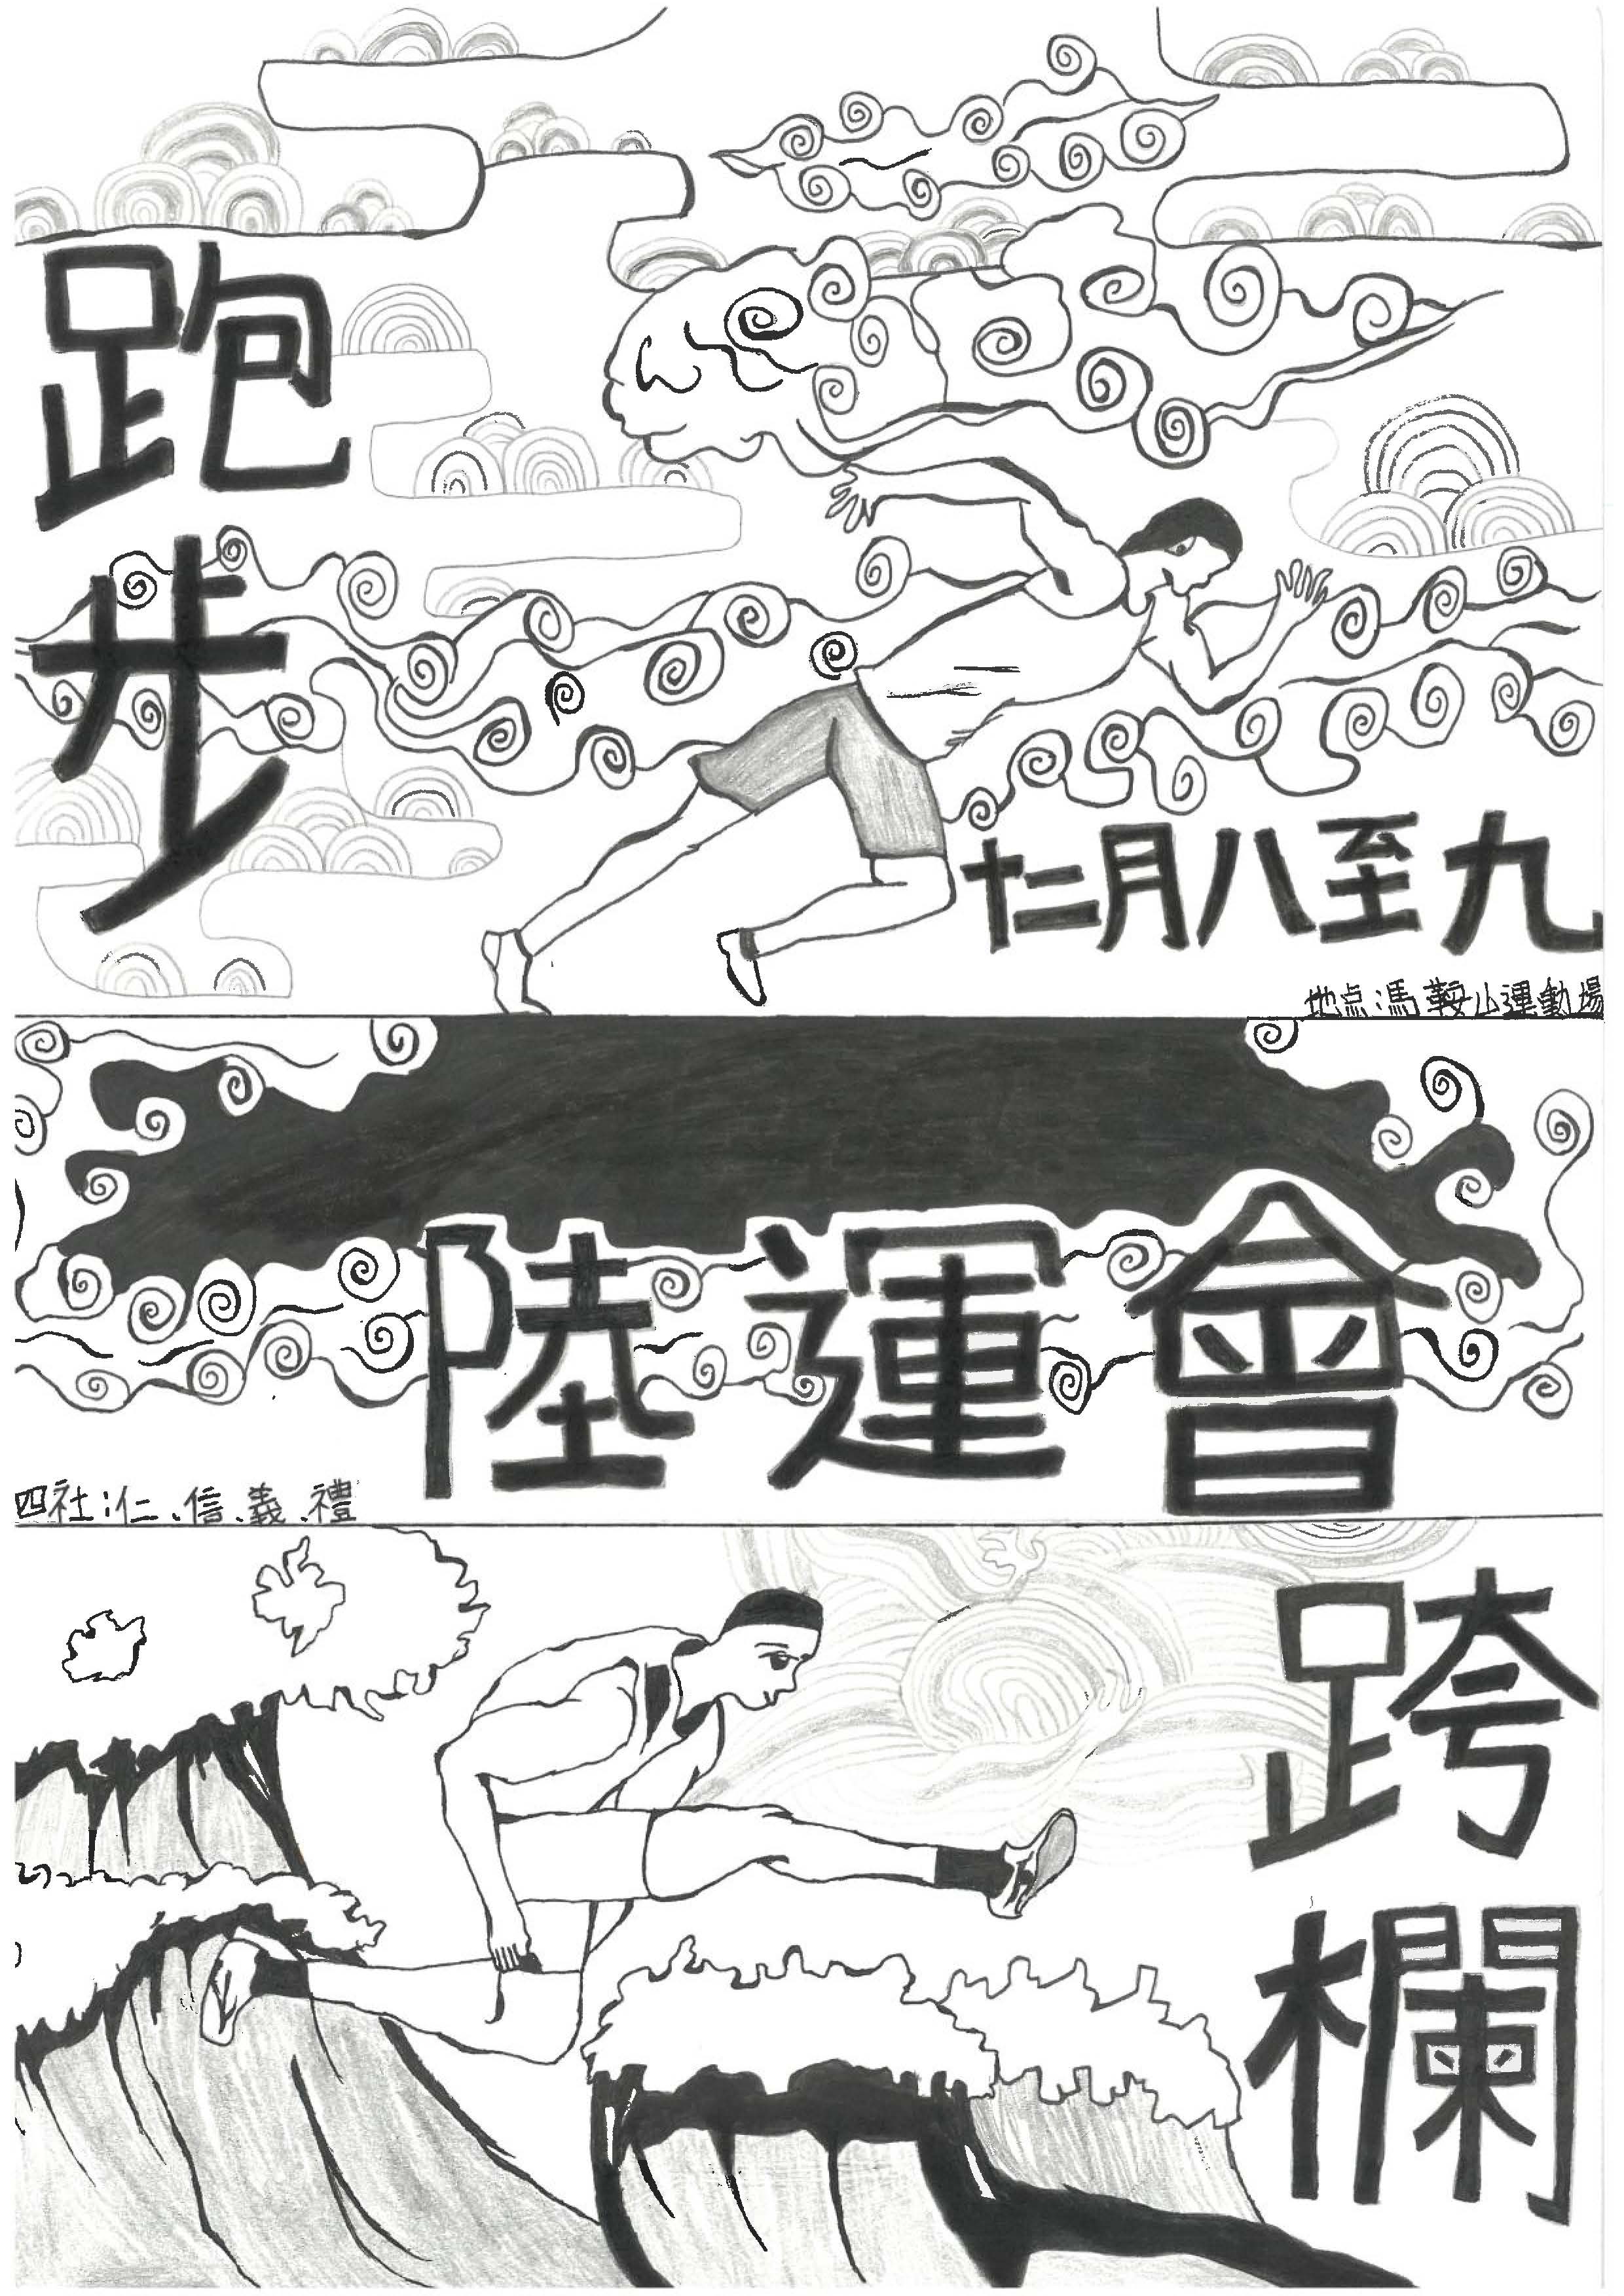 跑步
十二月八至九
地点:馮鞍山運動場
陸運會
四社:仁、信、義、禮
跨欄